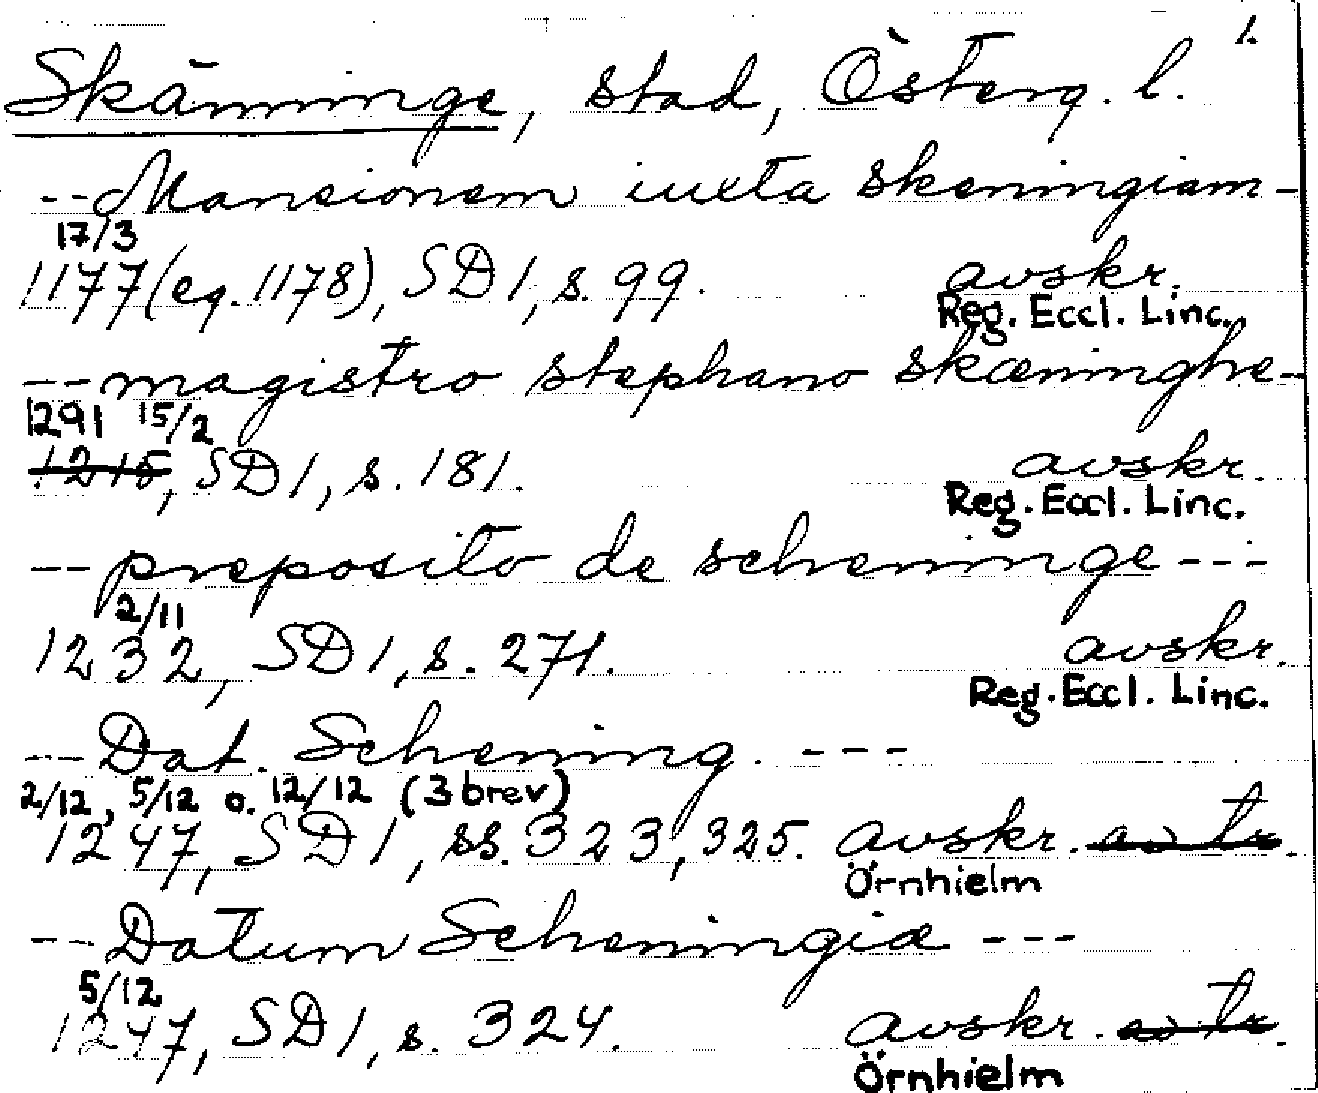 1.
Skäninge, stad, Österg. l.
-- Mansionem iuxta skeningiam -
17/3
1177 (eg. 1178), SD 1, s. 99. avskr.
Reg. Eccl. Linc.
-- magistro stephano skæninghe -
1291 15/2
1215, SD 1, s. 181. avskr.
Reg. Eccl. Linc.
-- preposito de scheninge ---
2/11
1232, SD 1, s. 271. avskr.
Reg. Eccl. Linc.
-- Dat. Schening. ---
2/12, 5/12 o. 12/12 (3 brev)
1247, SD 1, ss. 323, 325. avskr. av tr.
Örnhielm
-- Datum Scheningiæ ---
5/12
1247, SD 1, s. 324. avskr. av tr.
Örnhielm